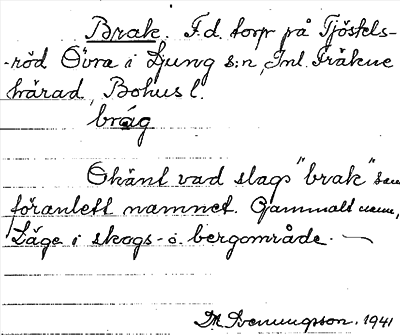 Brak. F.d. torp på Tjöstels-
-röd Övra i Ljung s:n, Inl. Fräkne
härad, Bohusl.
bråg
Okänt vad slags "brak" som
föranlett namnet. Gammalt namn,
Läge i skogs- o. bergområde.
1941